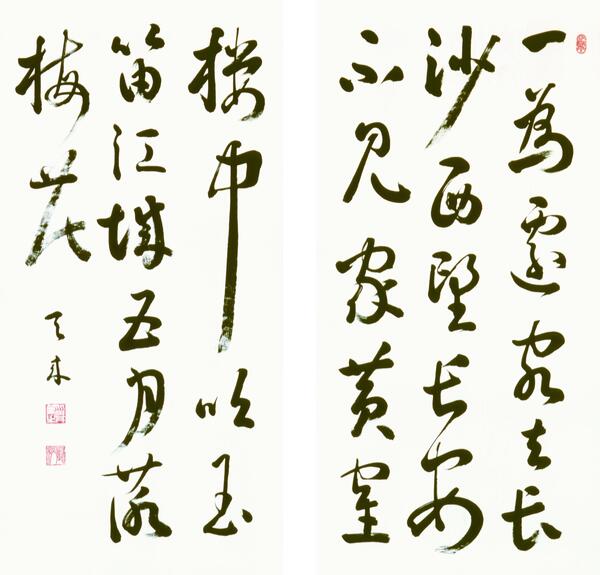 一為遷客去長
沙西望長安
不見家黃隺
樓中吹玉
笛江城五月落
梅花